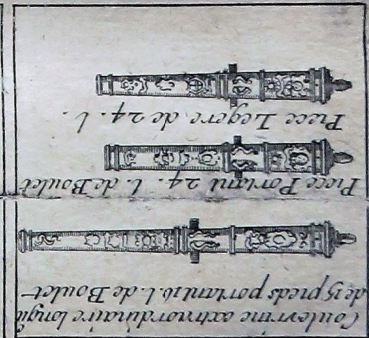 Coulevrine extraordinaire longũ
de 15 pieds portant 16. l. de Boulet
Piece Portant 24. l de Boulet
Piece Legere de 24. l.